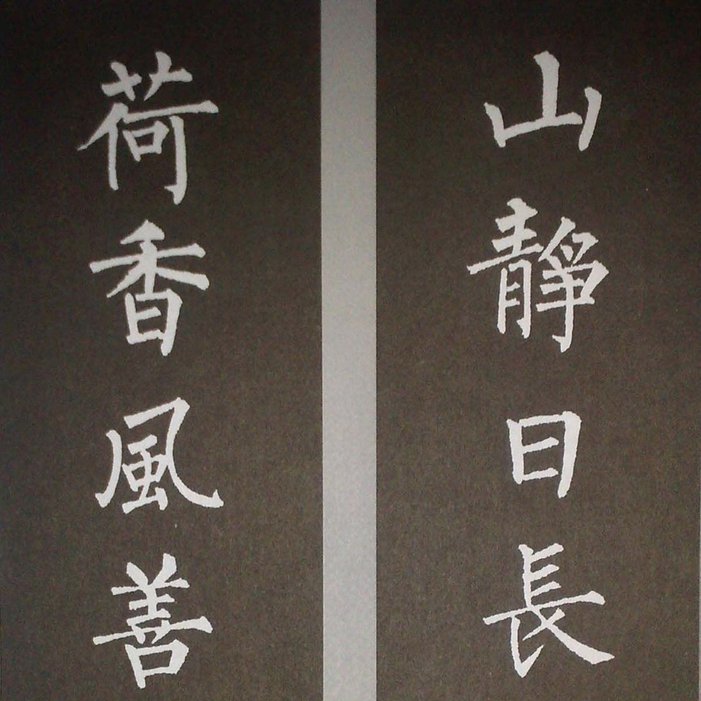 山靜日長
荷香風善